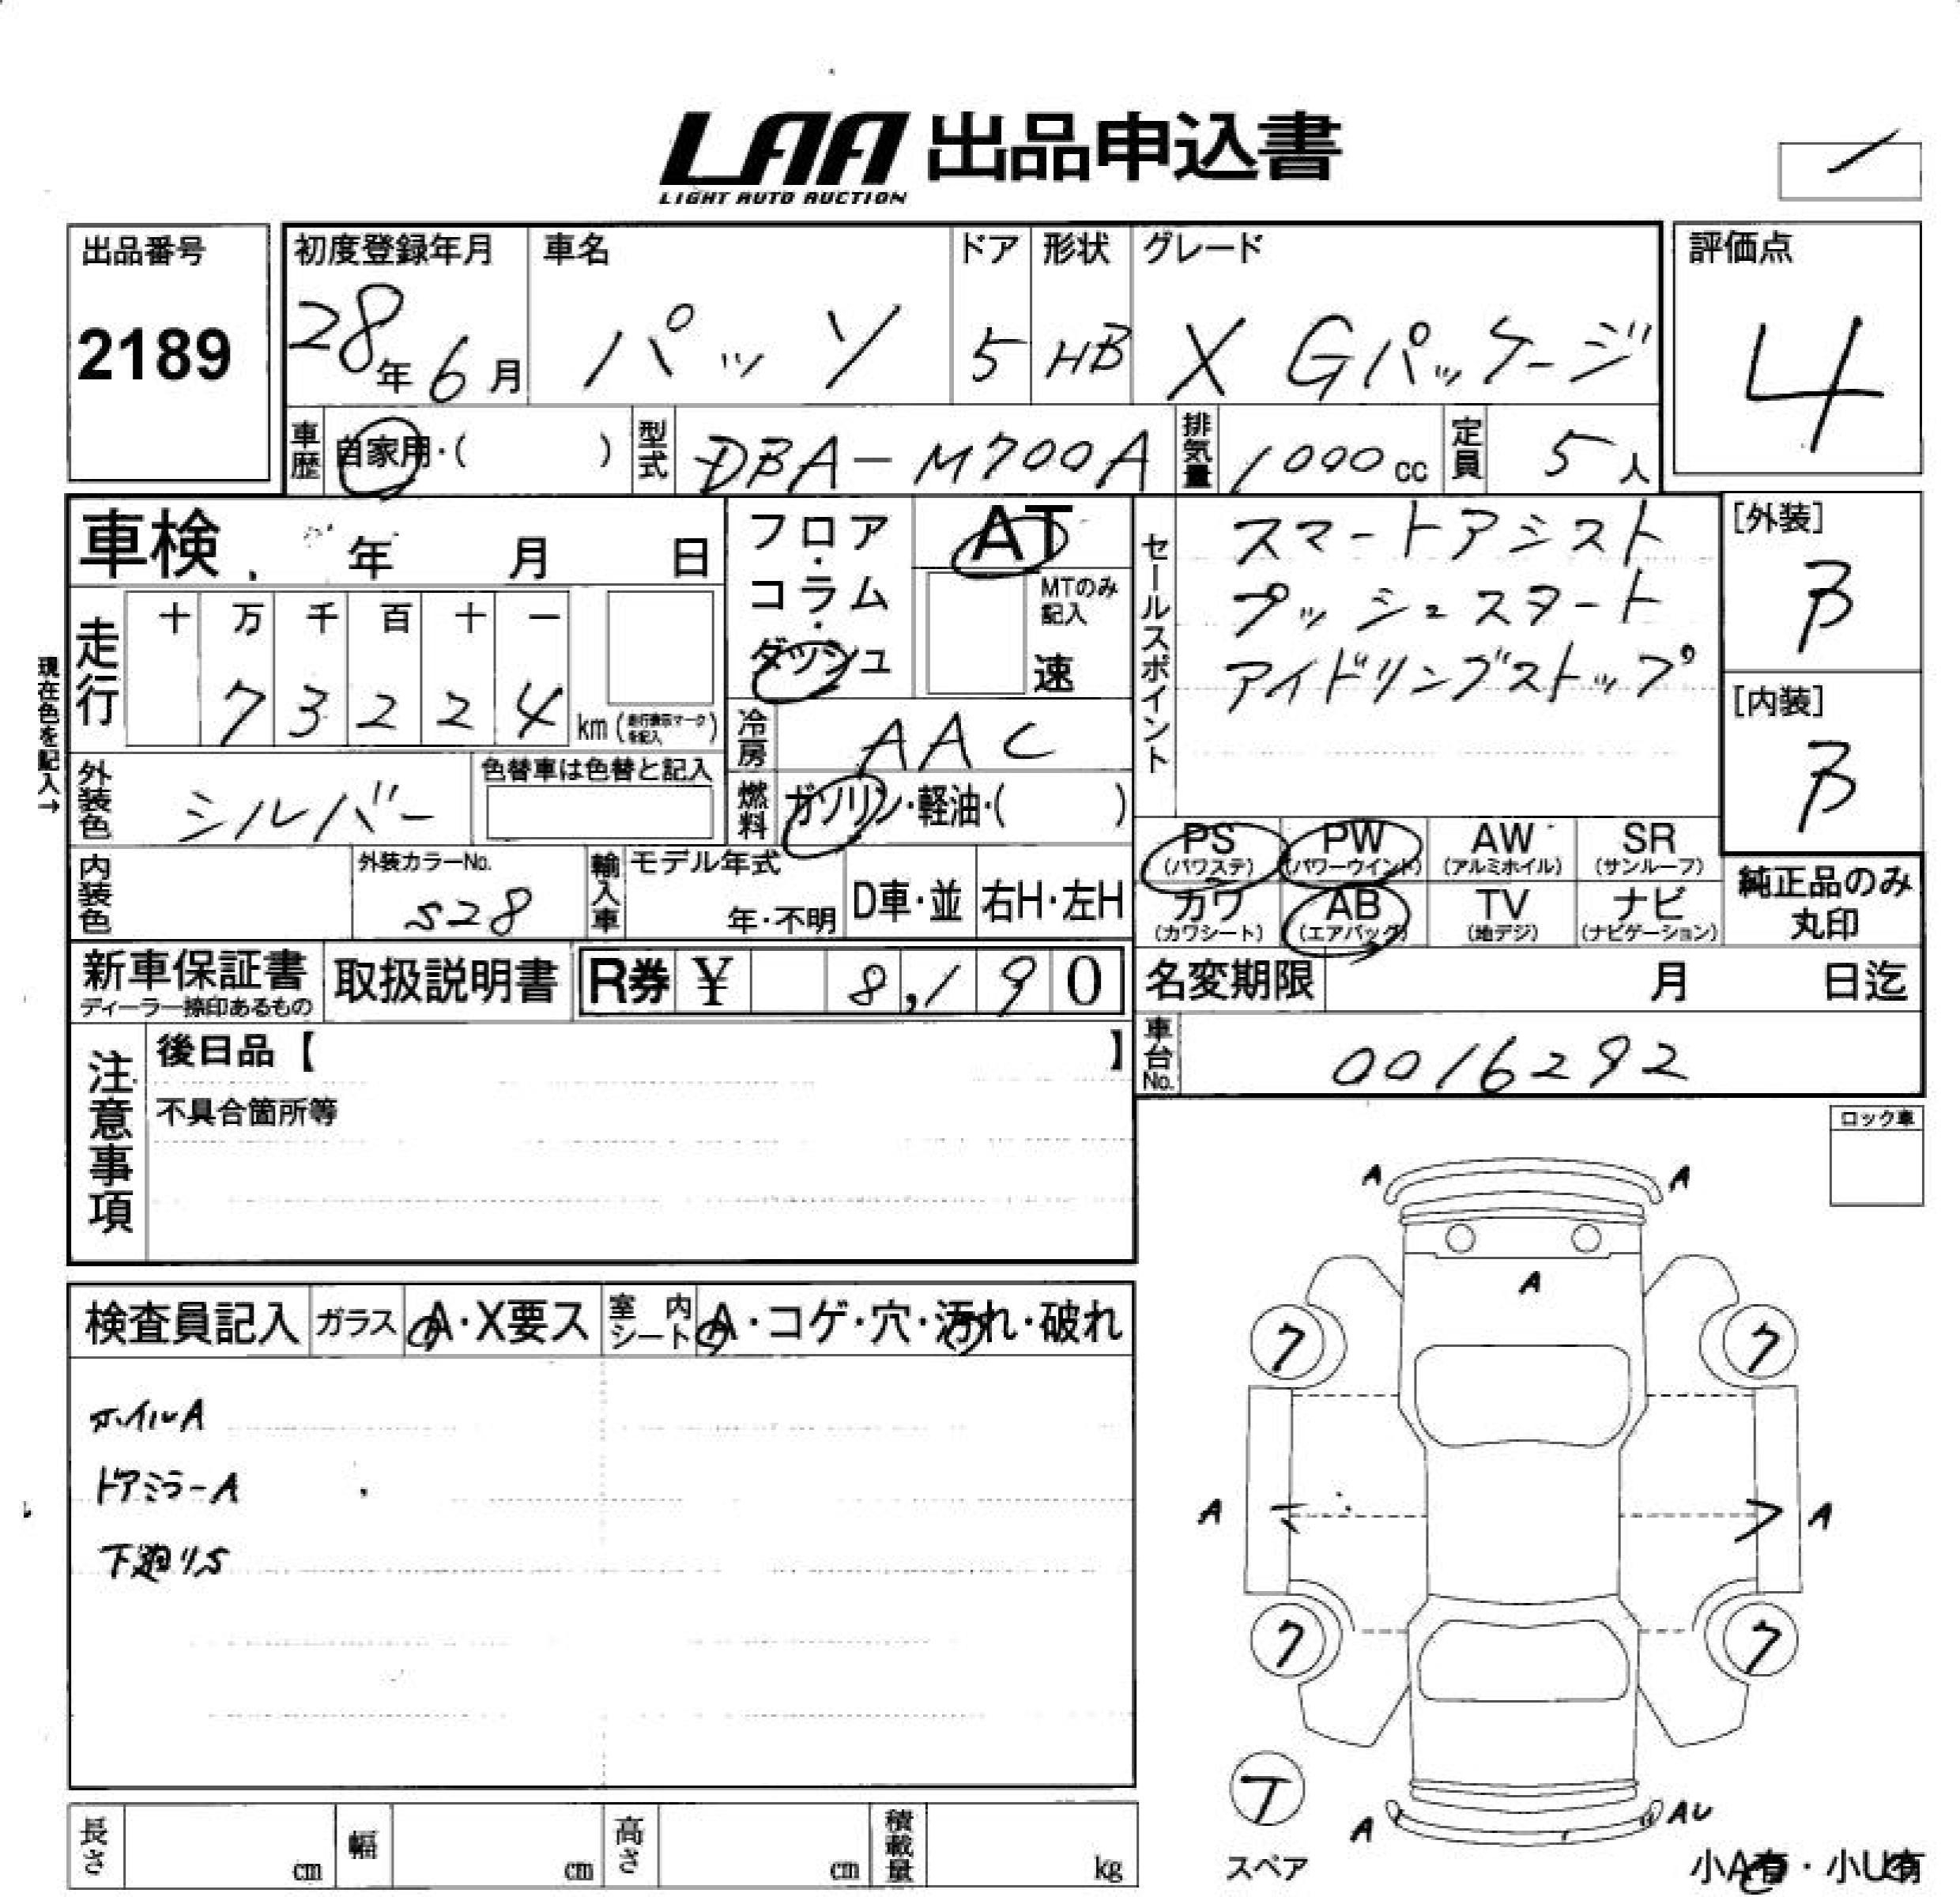 LAA 出品申込書
LIGHT AUTO AUCTION
出品番号
2189
初度登録年月
28年6月
車名
パッソ
ドア
5
形状
HB
グレード
X Gパッケージ
評価点
4
車歴
自家用・( )
型式
DBA-M700A
排気量
1000cc
定員
5人
車検 年 月 日
走行
十 万 千 百 十 一
7 3 2 2 4 km (走行表示マークを記入)
現在色を記入→
外装色
シルバー
色替車は色替と記入
フロア・コラム・ダッシュ
AT
MTのみ記入
速
冷房
AAC
燃料
ガソリン・軽油・( )
セールスポイント
スマートアシスト
プッシュスタート
アイドリングストップ
[外装]
B
[内装]
B
内装色
外装カラーNo.
S28
輸入車
モデル年式
年・不明
D車・並
右H・左H
PS (パワステ)
PW (パワーウインド)
AW (アルミホイル)
SR (サンルーフ)
カワ (カワシート)
AB (エアバック)
TV (地デジ)
ナビ (ナビゲーション)
純正品のみ丸印
新車保証書
ディーラー捺印あるもの
取扱説明書
R券 ¥ 8,190
名変期限 月 日迄
車台No.
0016292
注意事項
後日品【 】
不具合箇所等
ロック車
検査員記入
ガラス
A・X要ス
室内シート
A・コゲ・穴・汚れ・破れ
ホイルA
ドアミラーA
下廻りS
A
A
A
7
7
A
A
7
7
T
スペア
A
AU
小A有・小U有
長さ cm
幅 cm
高さ cm
積載量 kg